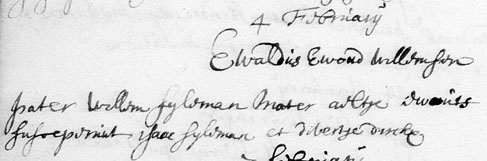 4 February
Ewaldus Ewoud Willemsen
pater Willem Syleman Mater aeltje
susceperunt isaac Syleman et dirckx